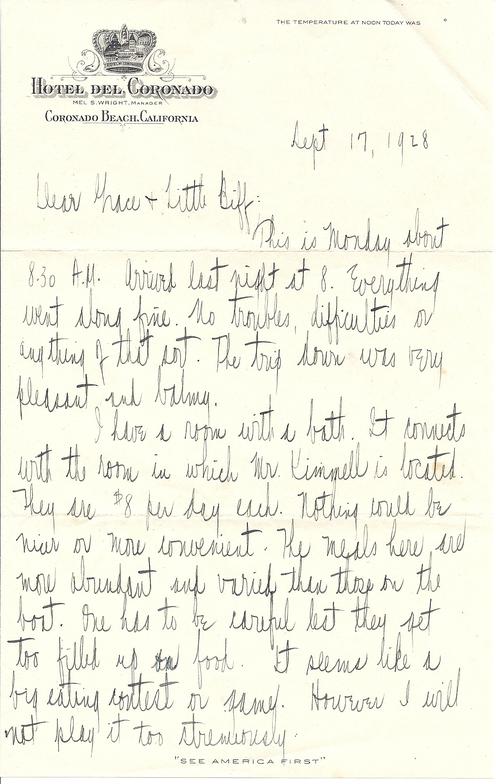 THE TEMPERATURE AT NOON TODAY WAS °
HOTEL DEL CORONADO
MEL S. WRIGHT, MANAGER
CORONADO BEACH, CALIFORNIA
Sept 17, 1928
Dear Grace + Little Biff:
This is Monday about
8.30 A.M. Arrived last night at 8. Everything
went along fine. No troubles, difficulties or
anything of that sort. The trip down was very
pleasant and balmy.
I have a room with a bath. It connects
with the room in which Mr. Kimmell is located.
They are $8 per day each. Nothing could be
nicer or more convenient. The meals here are
more abundant and varied than those on the
boat. One has to be careful lest they get
too filled up on food. It seems like a
big eating contest or game. However I will
not play it too strenuously.
"SEE AMERICA FIRST"